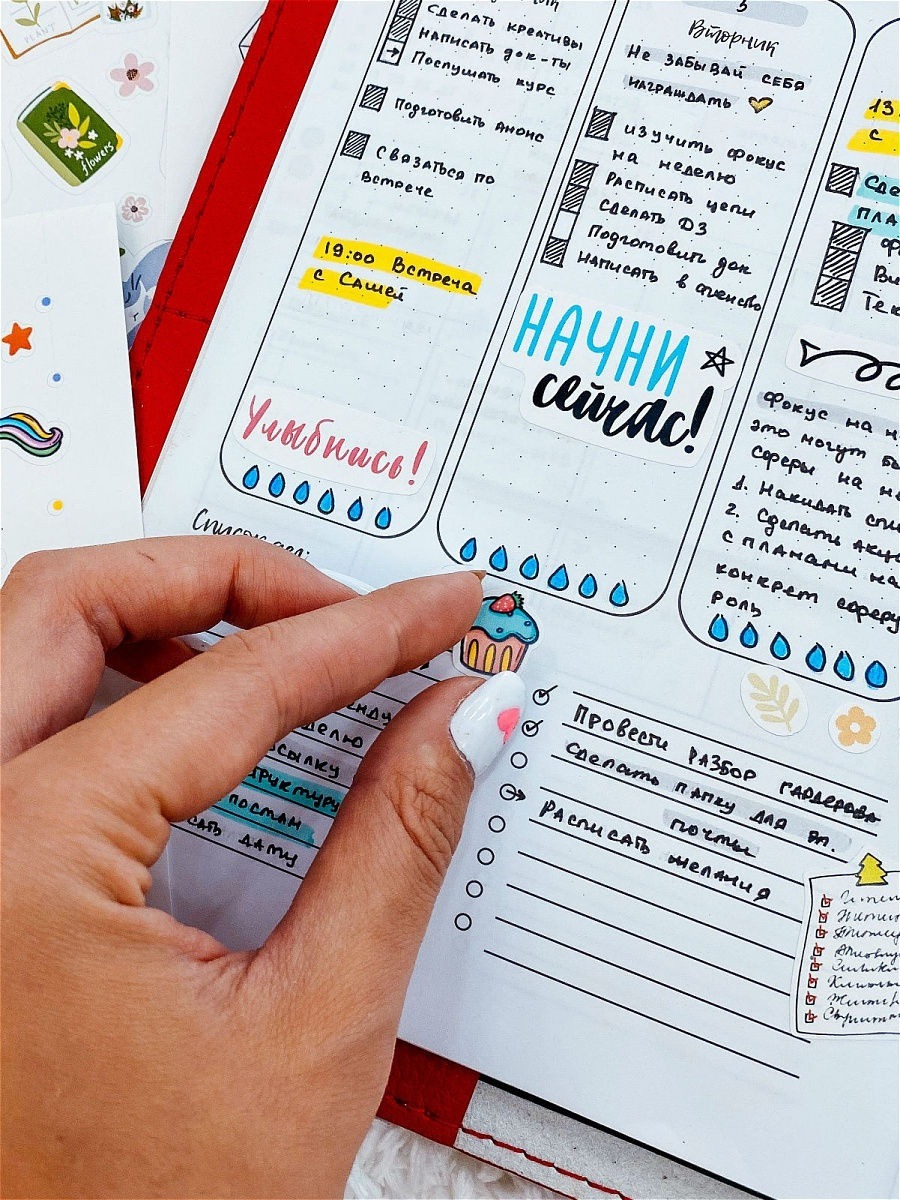 PLANT
flowers
Сделать креативы
написать док-ты
Послушать курс
Подготовить анонс
Связаться по
встрече
19:00 Встреча
с Сашей
Улыбнись!
3
Вторник
Не забывай себя
награждать
изучить фокус
на неделю
Расписать цепи
Сделать ДЗ
Подготовить док
написать в агенство
НАЧНИ
сейчас!
13
с
Сде
пла
Ви
Тек
Фокус на н
это могут бы
сферы на не
1. Накидать спи
2. Сделать акц
с планами на
конкрет сферу
роль
Список дел:
енду
делю
ссылку
постам
дату
Провести разбор гардероба
Сделать папку для эл.
почты
Расписать желания